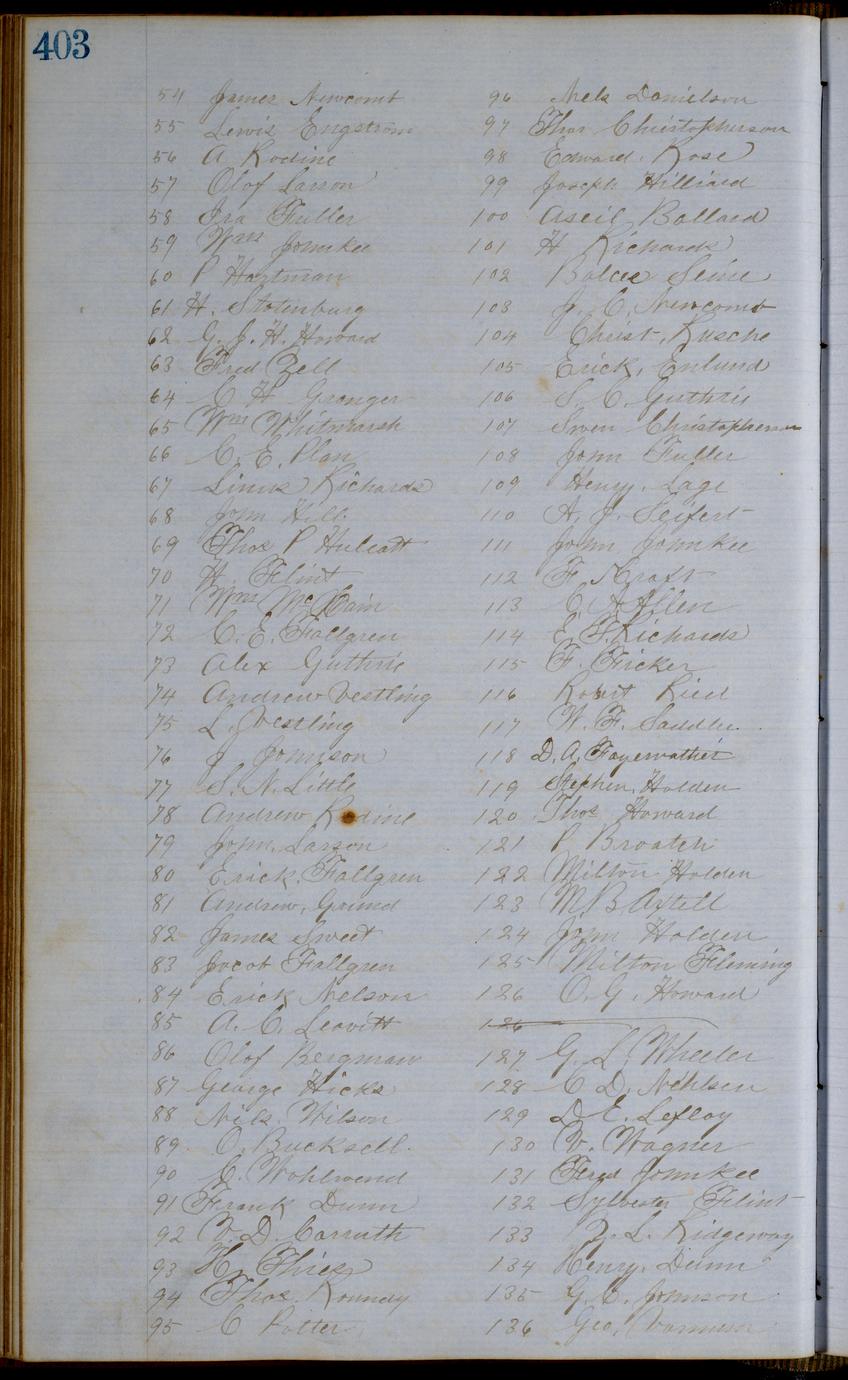 403
54 James Newcomb
55 Lewis Engstrom
56 A Rodine
57 Olof Larson
58 Ira Fuller
59 Wm Johnkee
60 P Hartman
61 H. Stotenburg
62 G. J. H. Howard
63 Fred Zell
64 C H Granger
65 Wm Whitmarsh
66 C. E. Plan
67 Linus Richards
68 John Hill
69 Thos P Hulcatt
70 H. Flint
71 Wm
72 C. E. Fallgren
73 Alex Guthrie
74 Andrew Vestling
75 L. Vestling
76 J Johnson
77 S. N. Little
78 Andrew Rodine
79 John Larson
80 Erick Fallgren
81 Andrew,
82 James Sweet
83 Jacob Fallgren
84 Erick Nelson
85 A. C. Leavitt
86 Olof Bergman
87 George Hicks
88 Nils Wilson
89 O. Bucksell
90 C. Wohlwend
91 Frank Dunn
92 V. D. Carruth
93 H. Thies
94 Thos. Roundy
95 C Potter
96 Nels Danielson
97 Thor Christopherson
98 Edward Rose
99 Joseph Hilliard
100 Aseil Ballard
101 H Richards
102
103 J. C. Newcomb
104 Christ, Rusche
105 Erick, Enlund
106 S. C. Guthrie
107 Swen Christopherson
108 John Fuller
109 Henry Lage
110 A. J. Seifert
111 John Johnkee
112 F. Kraft
113 C. A. Allen
114 E. F. Richards
115 F. Fricker
116 Robert Ried
117 W. F. Saddler
118 D. A. Fayerwather
119 Stephen, Holden
120 Thos Howard
121 P Broatch
122 Milton Holden
123 M B Axtell
124 John Holden
125 Milton Fleming
126 O. G. Howard
126
127 G. L. Wheeler
128 C D. Nehlsen
129 D E. Lefloy
130 V. Wagner
131 Fred Johnkee
132 Sylvester Flint
133 Z. L. Ridgeway
134 Henry, Dunn
135 G. C. Johnson
136 Geo. Varnum